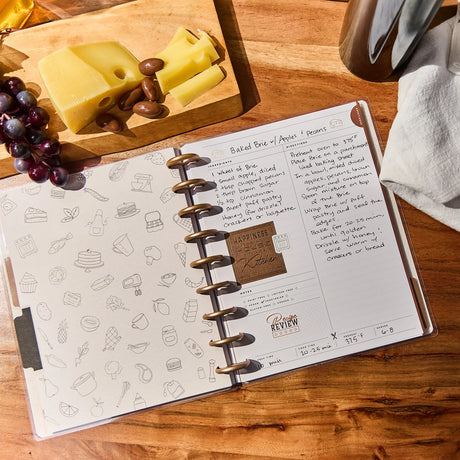 Baked Brie w/ Apples & pecans
INGREDIENTS
DIRECTIONS
1 wheel of Brie
1 small apple, diced
chopped pecans
brown sugar
1/2 tsp cinnamon
1 sheet puff pastry
Honey (for drizzle)
Crackers or baguette
Preheat oven to 375°
Place brie on a parchment
lined baking sheet
In a bowl, mixed diced
apples, pecans, brown
sugar, and cinnamon
Spoon mixture on top
of the brie
Wrap brie w/ puff
pastry and seal the
edges
Bake for 20-25 min
until golden
Drizzle w/ honey &
serve warm w/
crackers or bread
HAPPINESS
Kitchen
NOTES
Recipe
REVIEW
20-25 min
375°F
6-8